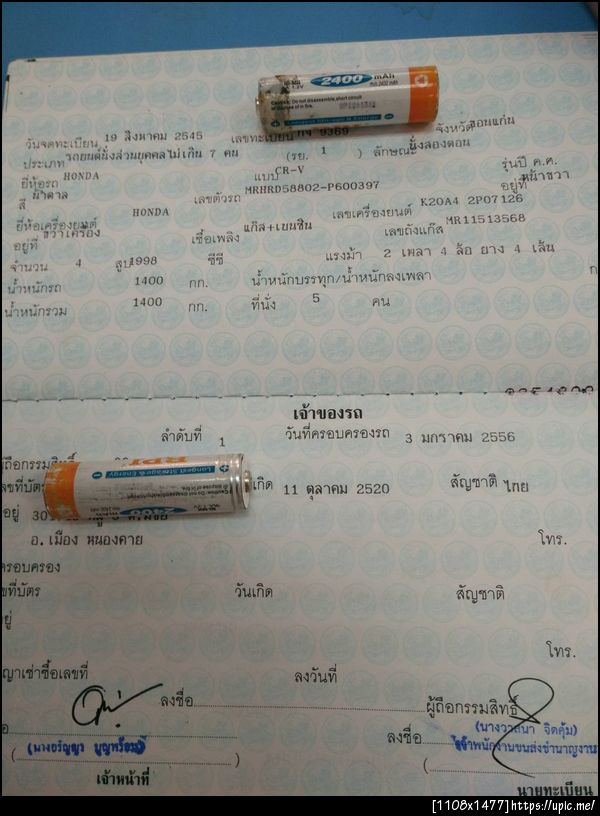 2400 mAh
1.2V
min.2400 mAh
Caution: Do not disassemble,short circuit
or dispose of in fire.
วันจดทะเบียน 19 สิงหาคม 2545 เลขทะเบียน กง 9369 จังหวัด ขอนแก่น
ประเภท รถยนต์นั่งส่วนบุคคลไม่เกิน 7 คน (รย. 1 ) ลักษณะ นั่งสองตอน
ยี่ห้อรถ HONDA แบบ CR-V รุ่นปี ค.ศ.
สี น้ำตาล เลขตัวรถ MRHRD58802-P600397 อยู่ที่ หน้าขวา
ยี่ห้อเครื่องยนต์ HONDA เลขเครื่องยนต์ K20A4 2P07126
อยู่ที่ ขวาเครื่อง เชื้อเพลิง แก๊ส+เบนซิน เลขถังแก๊ส MR11513568
จำนวน 4 สูบ 1998 ซีซี แรงม้า 2 เพลา 4 ล้อ ยาง 4 เส้น
น้ำหนักรถ 1400 กก. น้ำหนักบรรทุก/น้ำหนักลงเพลา ก
น้ำหนักรวม 1400 กก. ที่นั่ง 5 คน
เจ้าของรถ
ลำดับที่ 1 วันที่ครอบครองรถ 3 มกราคม 2556
ถือกรรมสิทธิ์
BPI
Longest Storage & Energy
เลขที่บัตร เกิด 11 ตุลาคม 2520 สัญชาติ ไทย
อยู่
2400 mAh
อ.เมือง หนองคาย โทร.
ครอบครอง
ที่บัตร วันเกิด สัญชาติ
โทร.
ญาเช่าซื้อเลขที่ ลงวันที่
ลงชื่อ ผู้ถือกรรมสิทธิ์
ลงชื่อ (นางวาสนา จิตคุ้ม)
(นางอรัญญา บุญพร้อม) เจ้าพนักงานขนส่งชำนาญงาน
เจ้าหน้าที่ นายทะเบียน
[1108x1477]https://upic.me/